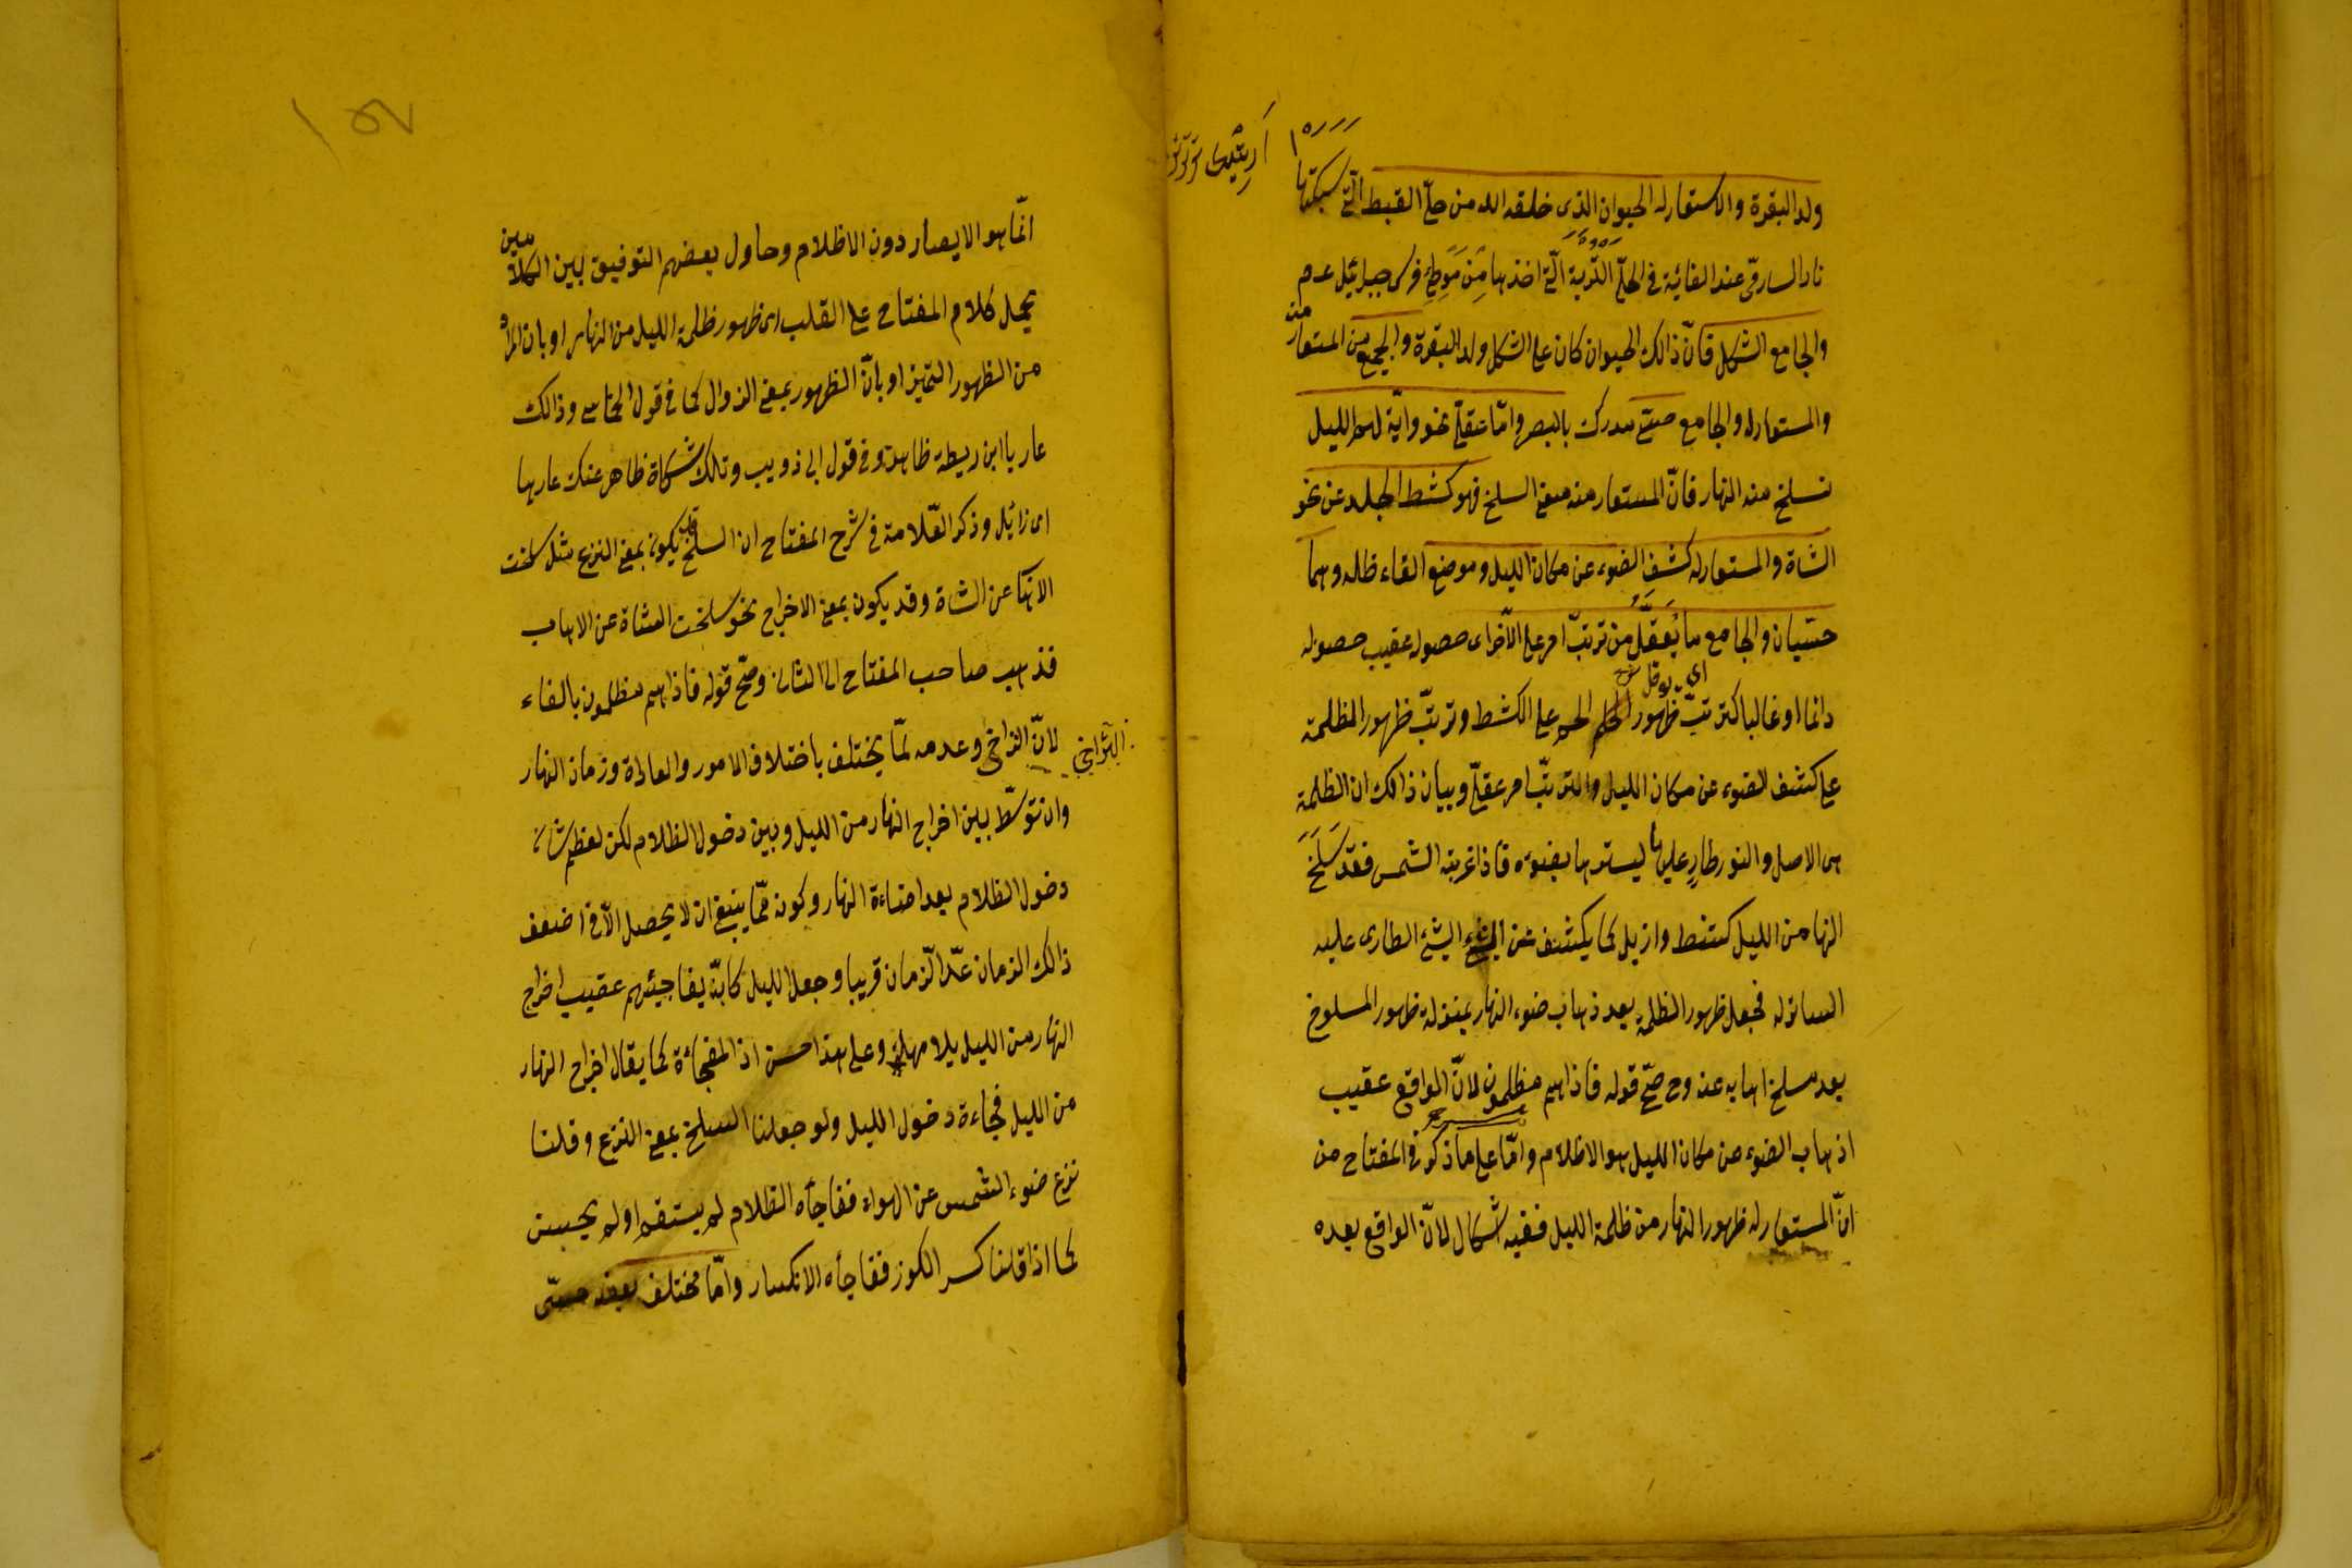 ولد البقرة والمستعار له الحيوان الذى خلقه الله من حلىّ القبط الّتى سبكتها
نار السامرى عند القائه فى الحلىّ التّربة الّتى اخذها مِن مَوطِئِ فرس جبرائيل عدم
والجامع الشكل فانّ ذالك الحيوان كان على الشكل ولد البقرة والجميع من المستعار منه
والمستعار له والجامع حسّى مدرك بالبصر وامّا عقلىّ نحو وآية لهم الليل
نسلخ منه النهار فانّ المستعار منه معنى السلخ فهو كشط الجلد عن نحو
الشاة والمستعار له كشف الضوء عن مكان الليل وموضع القاء ظله وهما
حسّيان والجامع ما يُعقَلُ من ترتبّ امر على الآخر اى حصوله عقيب حصوله
دائما او غالبا كترتبّ ظهور اللحم على الكشط وترتبّ ظهور الظلمة
على كشف الضوء عن مكان الليل والترتبّ امر عقلىّ وبيان ذالك ان الظلمة
هى الاصل والنور طارٍ عليها ليسترها بضوئه فاذا غربت الشمس فقد سَلَخَ
النهار من الليل كشط وازيل كما يكشف عن الشئ الشئ الطارى عليه
الساتر له فجعل ظهور الظلمة بعد ذهاب ضوء النهار بمنزلة ظهور المسلوخ
بعد سلخ اهابه عنه وح صحّ قوله فاذا هم مظلمون لانّ الواقع عقيب
اذهاب الضوء عن مكان الليل هو الاظلام وامّا على ما ذكر فى المفتاح من
انّ المستعار له ظهور النهار من ظلمة الليل ففيه اشكال لانّ الواقع بعده
انّما هو الابصار دون الاظلام وحاول بعضهم التوفيق بين الكلامين
بحمل كلام المفتاح على القلب اى ظهور ظلمة الليل من النهار او بان المراد
من الظهور التميز او بانّ الظهور بمعنى الزوال كما فى قول الحماسى وذالك
عار يا ابن ريطة ظاهر وفى قول ابى ذويب وتلك شكاة ظاهر عنك عارها
اى زائل وذكر العّلامة فى شرح المفتاح ان السلخ قد يكون بمعنى النزع مثل سلخت
الاهاب عن الشاة وقد يكون بمعنى الاخراج نحو سلخت الشاة عن الاهاب
فذهب صاحب المفتاح الى الثانى وصحّ قوله فاذا هم مظلمون بالفاء
لانّ التراخى وعدمه ممّا يختلف باختلاف الامور والعادة وزمان النهار
التراخى
وان توسّط بين اخراج النهار من الليل وبين دخول الظلام لكن لعظم شان
دخول الظلام بعد اضاءة النهار وكونه ممّا ينبغى ان لا يحصل الّا فى اضعف
ذالك الزمان عدّ الزّمان قريبا وجعل الليل كانّه يفاجيئهم عقيب اخراج
النهار من الليل بلا مهلة وعلى هذا حسن اذا المفجأة كما يقال اخرج النهار
من الليل فجاءه دخول الليل ولو جعلنا السلخ بمعنى النزع وقلنا
نزع ضوء الشمس عن الهواء ففاجأه الظلام لم يستقم او لم يحسن
كما اذا قلنا كسر الكوز ففاجأه الانكسار وامّا مختلف بعضه حسّى